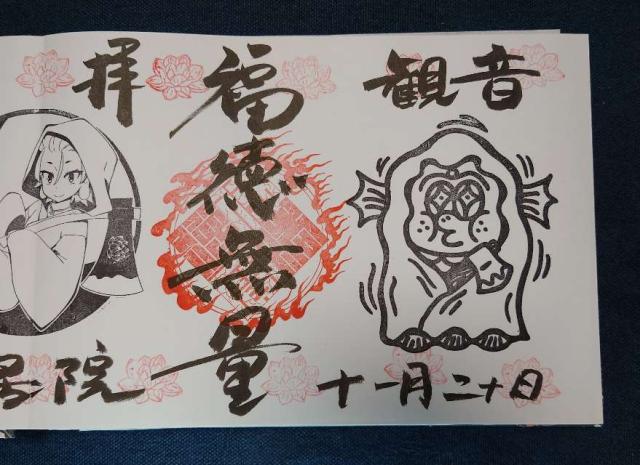 拝
福徳無量
観音
院
十一月二十日